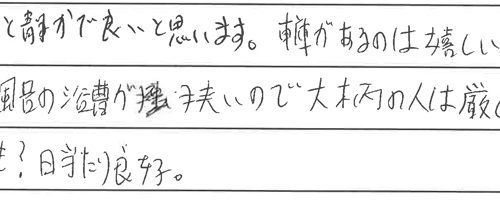 と静かで良いと思います。車庫があるのは嬉しい
風呂の浴槽が狭いので大柄の人は厳し
も?日当たり良好。